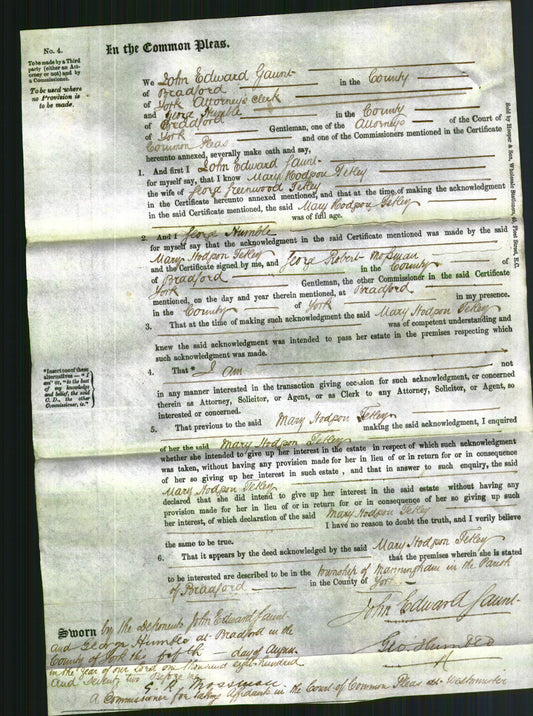 No. 4.
In the Common Pleas.
To be made by a Third
party (either an Attorney
or not) and by
a Commissioner.
To be used where
no Provision is
to be made.
We John Edward Gaunt
of Bradford in the County
of York Attorneys Clerk
and George Humble
of Bradford in the County
of York Gentleman, one of the Attorneys of the Court of
Common Pleas and one of the Commissioners mentioned in the Certificate
hereunto annexed, severally make oath and say,
1. And first I John Edward Gaunt
for myself say, that I know Mary Hodgson Tetley
the wife of George Greenwood Tetley
in the Certificate hereunto annexed mentioned, and that at the time of making the acknowledgment
in the said Certificate mentioned, the said Mary Hodgson Tetley
was of full age.
2. And I George Humble
for myself say that the acknowledgment in the said Certificate mentioned was made by the said
Mary Hodgson Tetley
and the Certificate signed by me, and George Robert Mossman
of Bradford in the County of
York Gentleman, the other Commissioner in the said Certificate
mentioned, on the day and year therein mentioned, at Bradford
in the County of York in my presence.
3. That at the time of making such acknowledgment the said Mary Hodgson Tetley
was of competent understanding and
knew the said acknowledgment was intended to pass her estate in the premises respecting which
such acknowledgment was made.
4. That * I am not
in any manner interested in the transaction giving occasion for such acknowledgment, or concerned
therein as Attorney, Solicitor, or Agent, or as Clerk to any Attorney, Solicitor, or Agent, so
interested or concerned.
* Insert one of these
alternatives—"I
am" or, "to the best
of my knowledge
and belief, the said
C. D., the other
Commissioner, is."
5. That previous to the said Mary Hodgson Tetley
making the said acknowledgment, I enquired
of her the said Mary Hodgson Tetley
whether she intended to give up her interest in the estate in respect of which such acknowledgment
was taken, without having any provision made for her in lieu of or in return for or in consequence
of her so giving up her interest in such estate, and that in answer to such enquiry, the said
Mary Hodgson Tetley
declared that she did intend to give up her interest in the said estate without having any
provision made for her in lieu of or in return for or in consequence of her so giving up such
her interest, of which declaration of the said Mary Hodgson Tetley
I have no reason to doubt the truth, and I verily believe
the same to be true.
6. That it appears by the deed acknowledged by the said Mary Hodgson Tetley
that the premises wherein she is stated
to be interested are described to be in the township of Manningham in the Parish
of Bradford in the County of York
John Edward Gaunt
Geo. Humble
Sworn by the Deponents John Edward Gaunt
and George Humble at Bradford in the
County of York this fifth day of August
in the year of our Lord one thousand eight hundred
and Seventy two Before me
G. R. Mossman
A Commissioner for taking Affidavits in the Court of Common Pleas at Westminster
Sold by Hooper & Son, Wholesale Stationers, 45, Fleet Street, E.C.